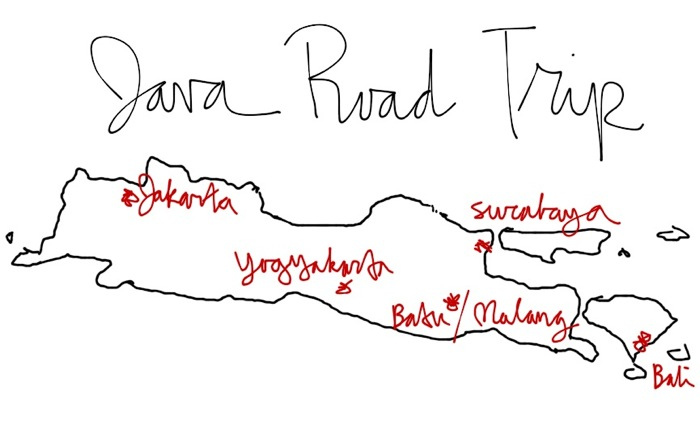 Java Road Trip
Jakarta
surabaya
Yogyakarta
Batu / Malang
Bali